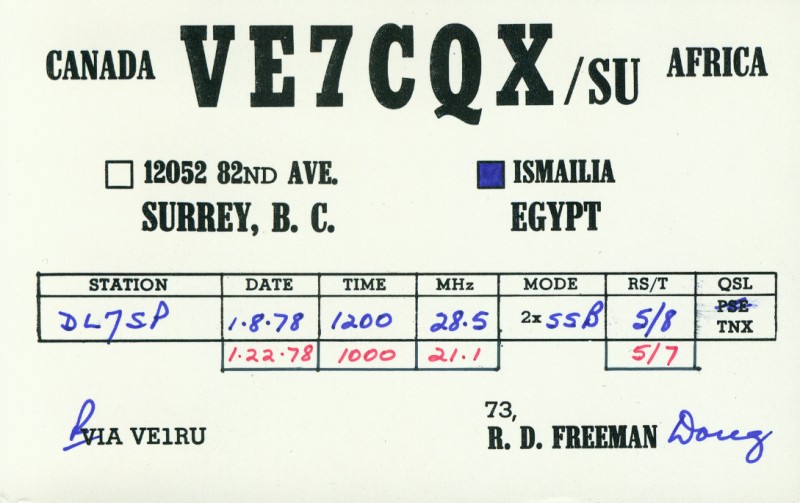 CANADA VE7CQX/SU AFRICA
12052 82ND AVE. ISMAILIA
SURREY, B. C. EGYPT
STATION DATE TIME MHz MODE RS/T QSL
DL7SP 1.8.78 1200 28.5 2x SSB 5/8 PSE
TNX
1.22.78 1000 21.1 5/7
VIA VE1RU 73,
R. D. FREEMAN Doug